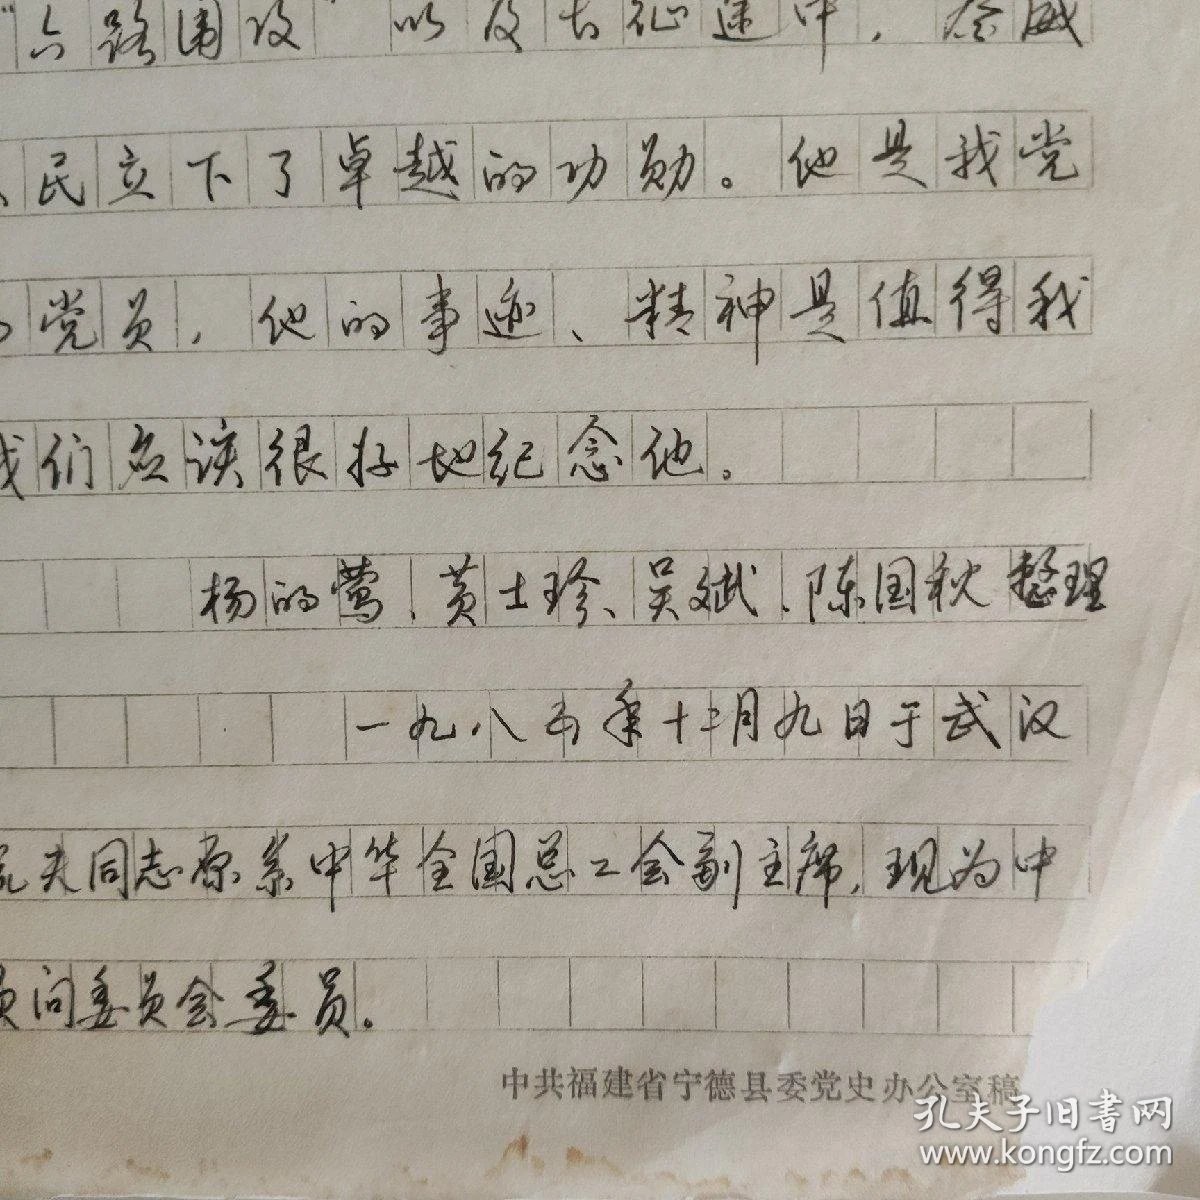 "六路围攻"以及长征途中，蔡威
民立下了卓越的功勋。他是我党
党员，他的事迹、精神是值得我
我们应该很好地纪念他。
杨的莺、黄士珍、吴斌、陈国秋整理
一九八五年十二月九日于武汉
夫同志原系中华全国总工会副主席，现为中
顾问委员会委员。
中共福建省宁德县委党史办公室稿
孔夫子旧書网
www.kongfz.com